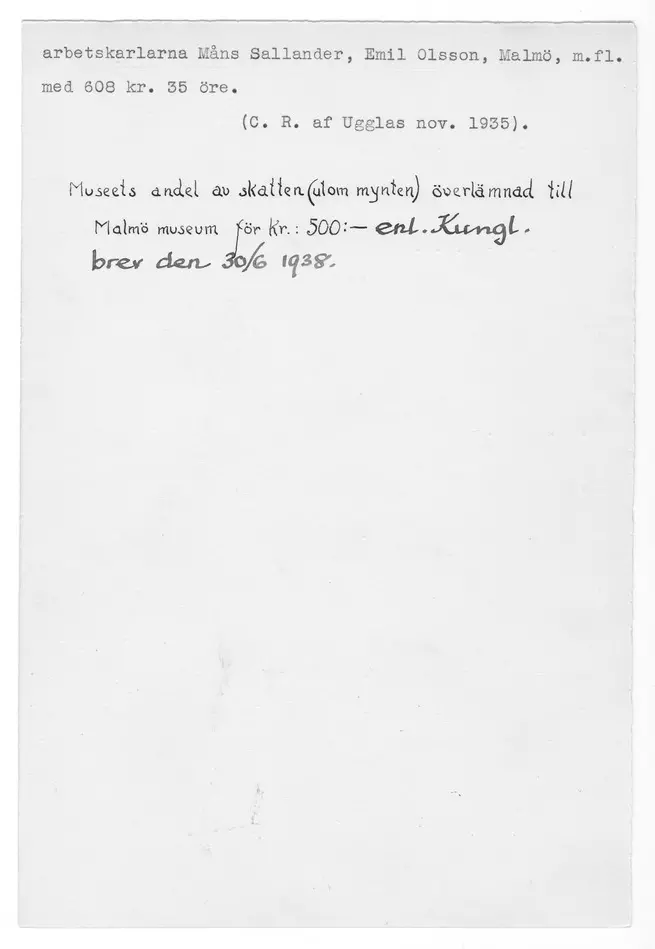 arbetskarlarna Måns Sallander, Emil Olsson, Malmö, m.fl.
med 608 kr. 35 öre.
(C. R. af Ugglas nov. 1935).
Museets andel av skatten (utom mynten) överlämnad till
Malmö museum för kr.: 500:— enl. Kungl.
brev den 30/6 1938.